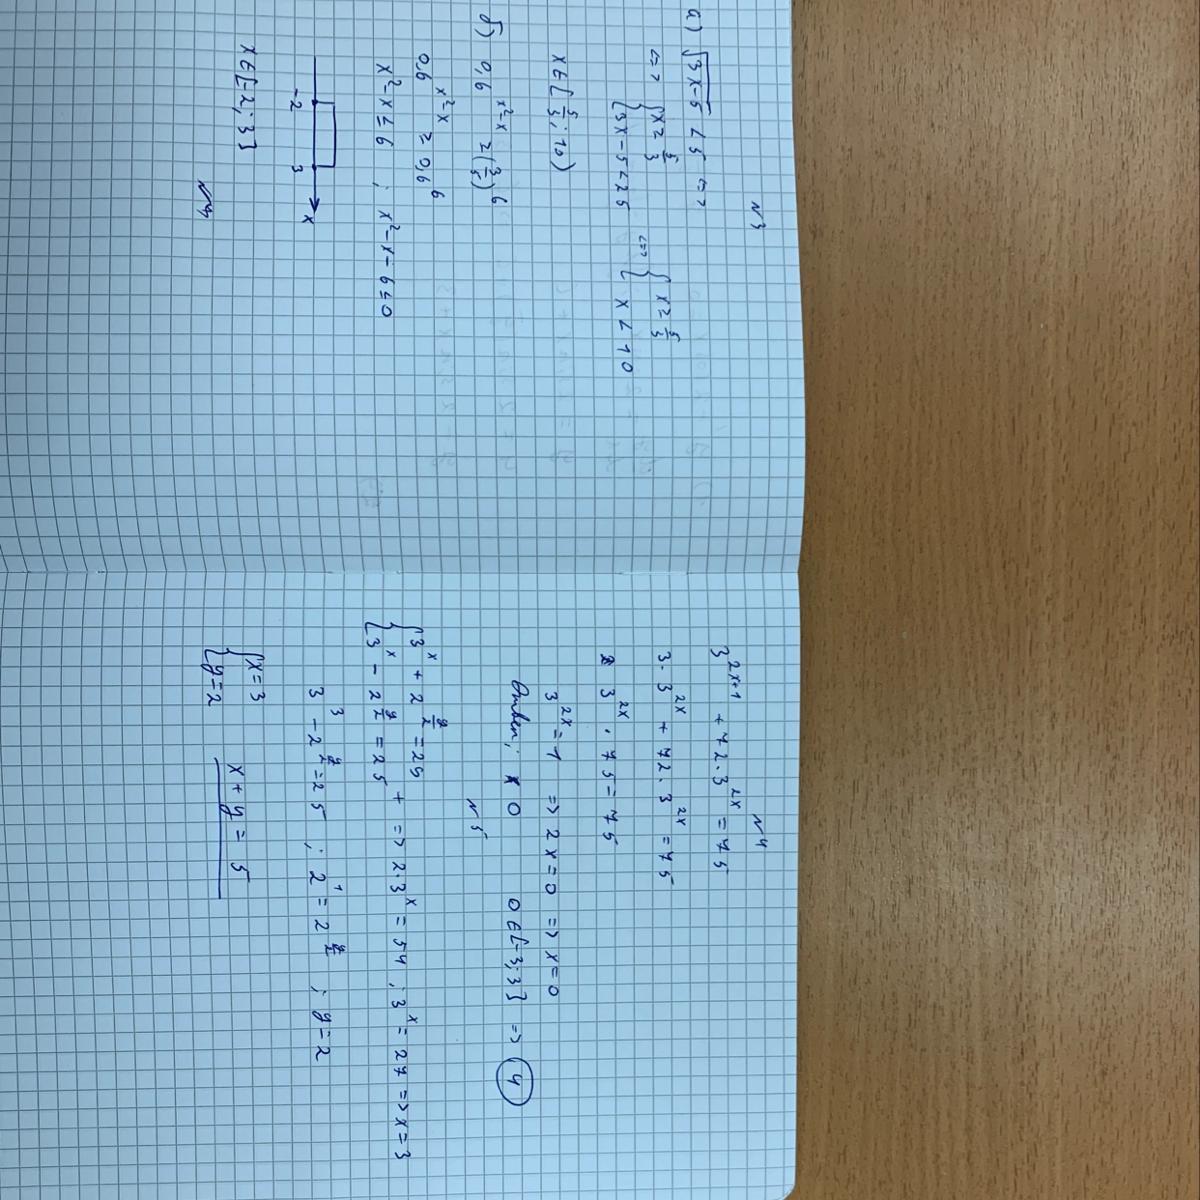 N3
а) √3x-5 < 5 <=>
<=> { x ≥ 5/3
{ 3x-5<25 <=> { x ≥ 5/3
{ x < 10
x ∈ [5/3; 10)
б) 0,6^(x²-x) ≥ (3/5)^6
0,6^(x²-x) ≥ 0,6^6
x²-x ≤ 6 ; x²-x-6≤0
-2 3 x
x ∈ [-2; 3]
N4
N4
3^(2x+1) + 72·3^(2x) = 75
3·3^(2x) + 72·3^(2x) = 75
3^(2x) · 75 = 75
3^(2x) = 1 => 2x=0 => x=0
Ответ: 0 0 ∈ [-3; 3] => 4
N5
{ 3^x + 2^(y/2) = 29
{ 3^x - 2^(y/2) = 25 + => 2·3^x = 54 ; 3^x = 27 => x=3
3^3 - 2^(y/2) = 25 ; 2^1 = 2^(y/2) ; y=2
{ x=3
{ y=2 x + y = 5